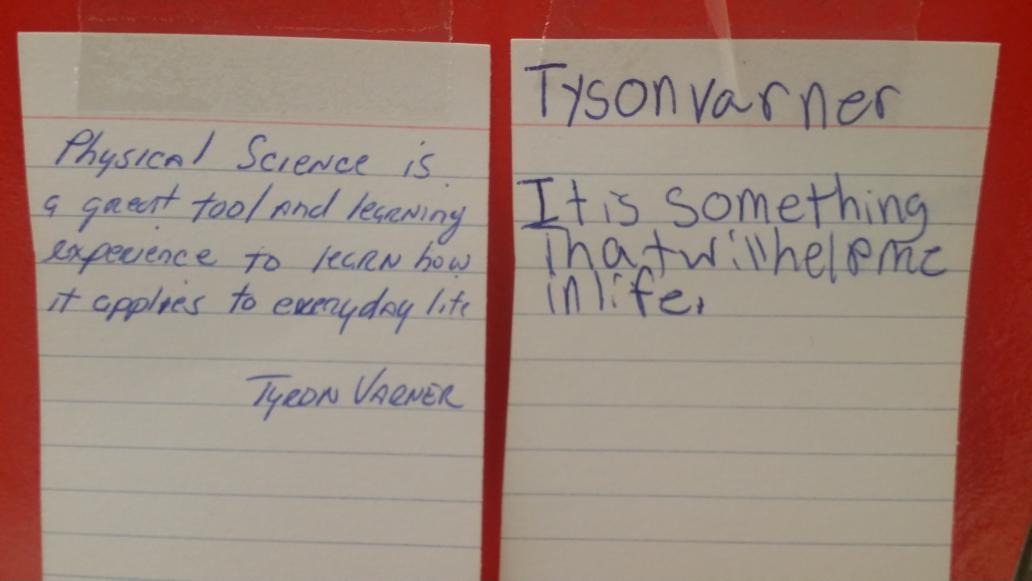 Physical Science is
a great tool and learning
experience to learn how
it applies to everyday life
Tyron Varner
Tyson varner
It is something
that will help me
in life.